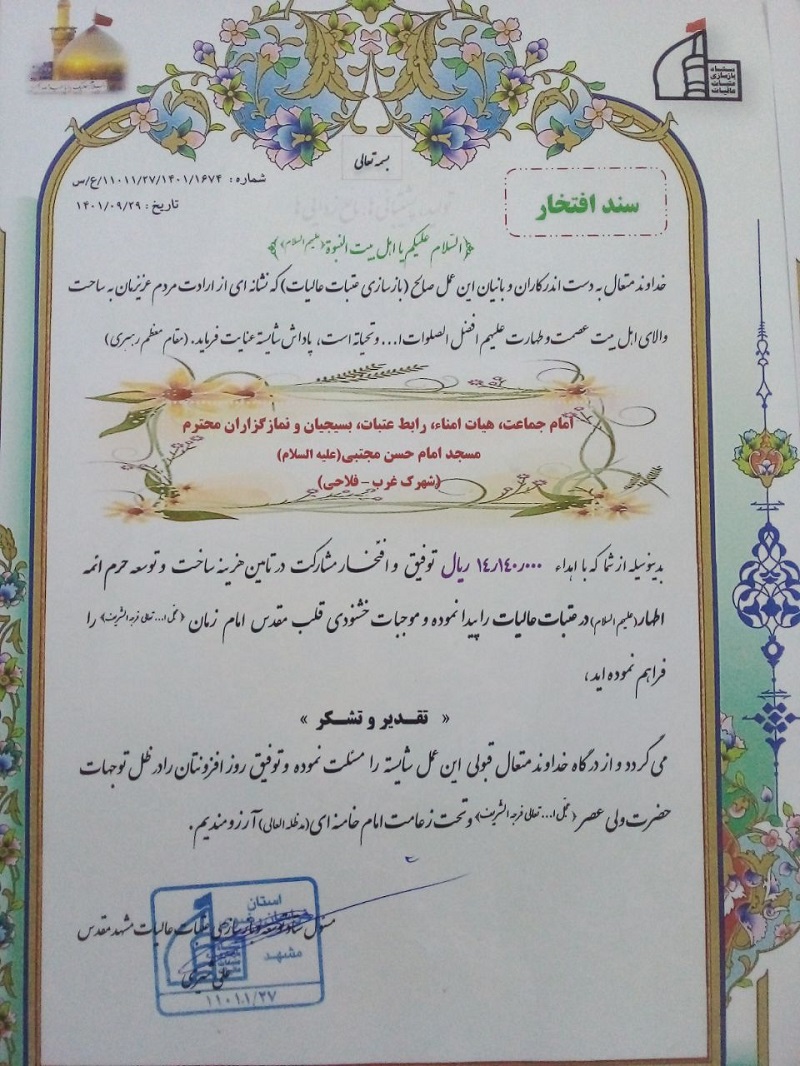 ستاد
بازسازی
عتبات
عالیات
بسمه تعالی
شماره : ۱۱۰۱۱/۲۷/۱۴۰۱/۱۶۷۴/ع/س
تاریخ : ۱۴۰۱/۰۹/۲۹
سند افتخار
﴿السّلام علیکم یا اهل بیت النبوة(علیهم السلام)﴾
خداوند متعال به دست اندرکاران و بانیان این عمل صالح (بازسازی عتبات عالیات) که نشانه ای از ارادت مردم عزیزمان به ساحت
والای اهل بیت عصمت و طهارت علیهم افضل الصلوات ا... و تحیاته است، پاداش شایسته عنایت فرماید. (مقام معظم رهبری)
امام جماعت، هیات امناء، رابط عتبات، بسیجیان و نمازگزاران محترم
مسجد امام حسن مجتبی(علیه السلام)
(شهرک غرب - فلاحی)
بدینوسیله از شما که با اهداء ۱۴٫۱۴۰٫۰۰۰ ریال توفیق و افتخار مشارکت در تامین هزینه ساخت و توسعه حرم ائمه
اطهار(علیهم السلام) در عتبات عالیات را پیدا نموده و موجبات خشنودی قلب مقدس امام زمان (عجّل ا... تعالی فرجه الشریف) را
فراهم نموده اید،
« تقـدیر و تشـکر »
می گردد و از درگاه خداوند متعال قبولی این عمل شایسته را مسئلت نموده و توفیق روز افزونتان را در ظل توجهات
حضرت ولی عصر (عجّل ا... تعالی فرجه الشریف) و تحت زعامت امام خامنه ای (مدظله العالی) آرزومندیم.
مسئول ستاد توسعه و بازسازی عتبات عالیات مشهد مقدس
استان
خراسان رضوی
مشهد
۱۱۰۱۱/۲۷